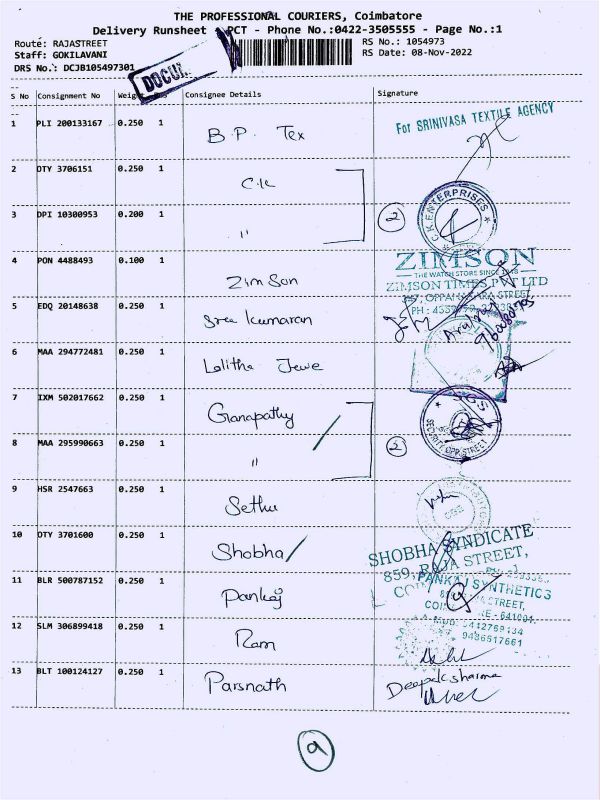 THE PROFESSIONAL COURIERS, Coimbatore
Delivery Runsheet PCT - Phone No.:0422-3505555 - Page No.:1
Route: RAJASTREET
RS No.: 1054973
Staff: GOKILAVANI
RS Date: 08-Nov-2022
DRS No.: DCJB105497301
S No Consignment No Weight Consignee Details Signature
1 PLI 200133167 0.250 1 B.P. Tex
For SRINIVASA TEXTILE AGENCY
2 OTY 3706151 0.250 1 C.K
C.K ENTERPRISES
3 DPI 10300953 0.200 1 " 2
4 PON 4488493 0.100 1 Zimson
ZIMSON
THE WATCH STORES SINCE 1948
ZIMSON TIMES PVT LTD
5 EDQ 20148638 0.250 1 Sree Kumaran
6 MAA 294772481 0.250 1 Lalitha Jewe
7 IXM 502017662 0.250 1 Ganapathy
8 MAA 295990663 0.250 1 " 2
SECURITY OPP. STREET
9 HSR 2547663 0.250 1 Sethu
10 OTY 3701600 0.250 1 Shobha
SHOBHA SYNDICATE
859, RAJA STREET,
11 BLR 500787152 0.250 1 Pankaj
PANKAJ SYNTHETICS
12 SLM 306899418 0.250 1 Ram
13 BLT 100124127 0.250 1 Parsnath
Deepak sharma
9